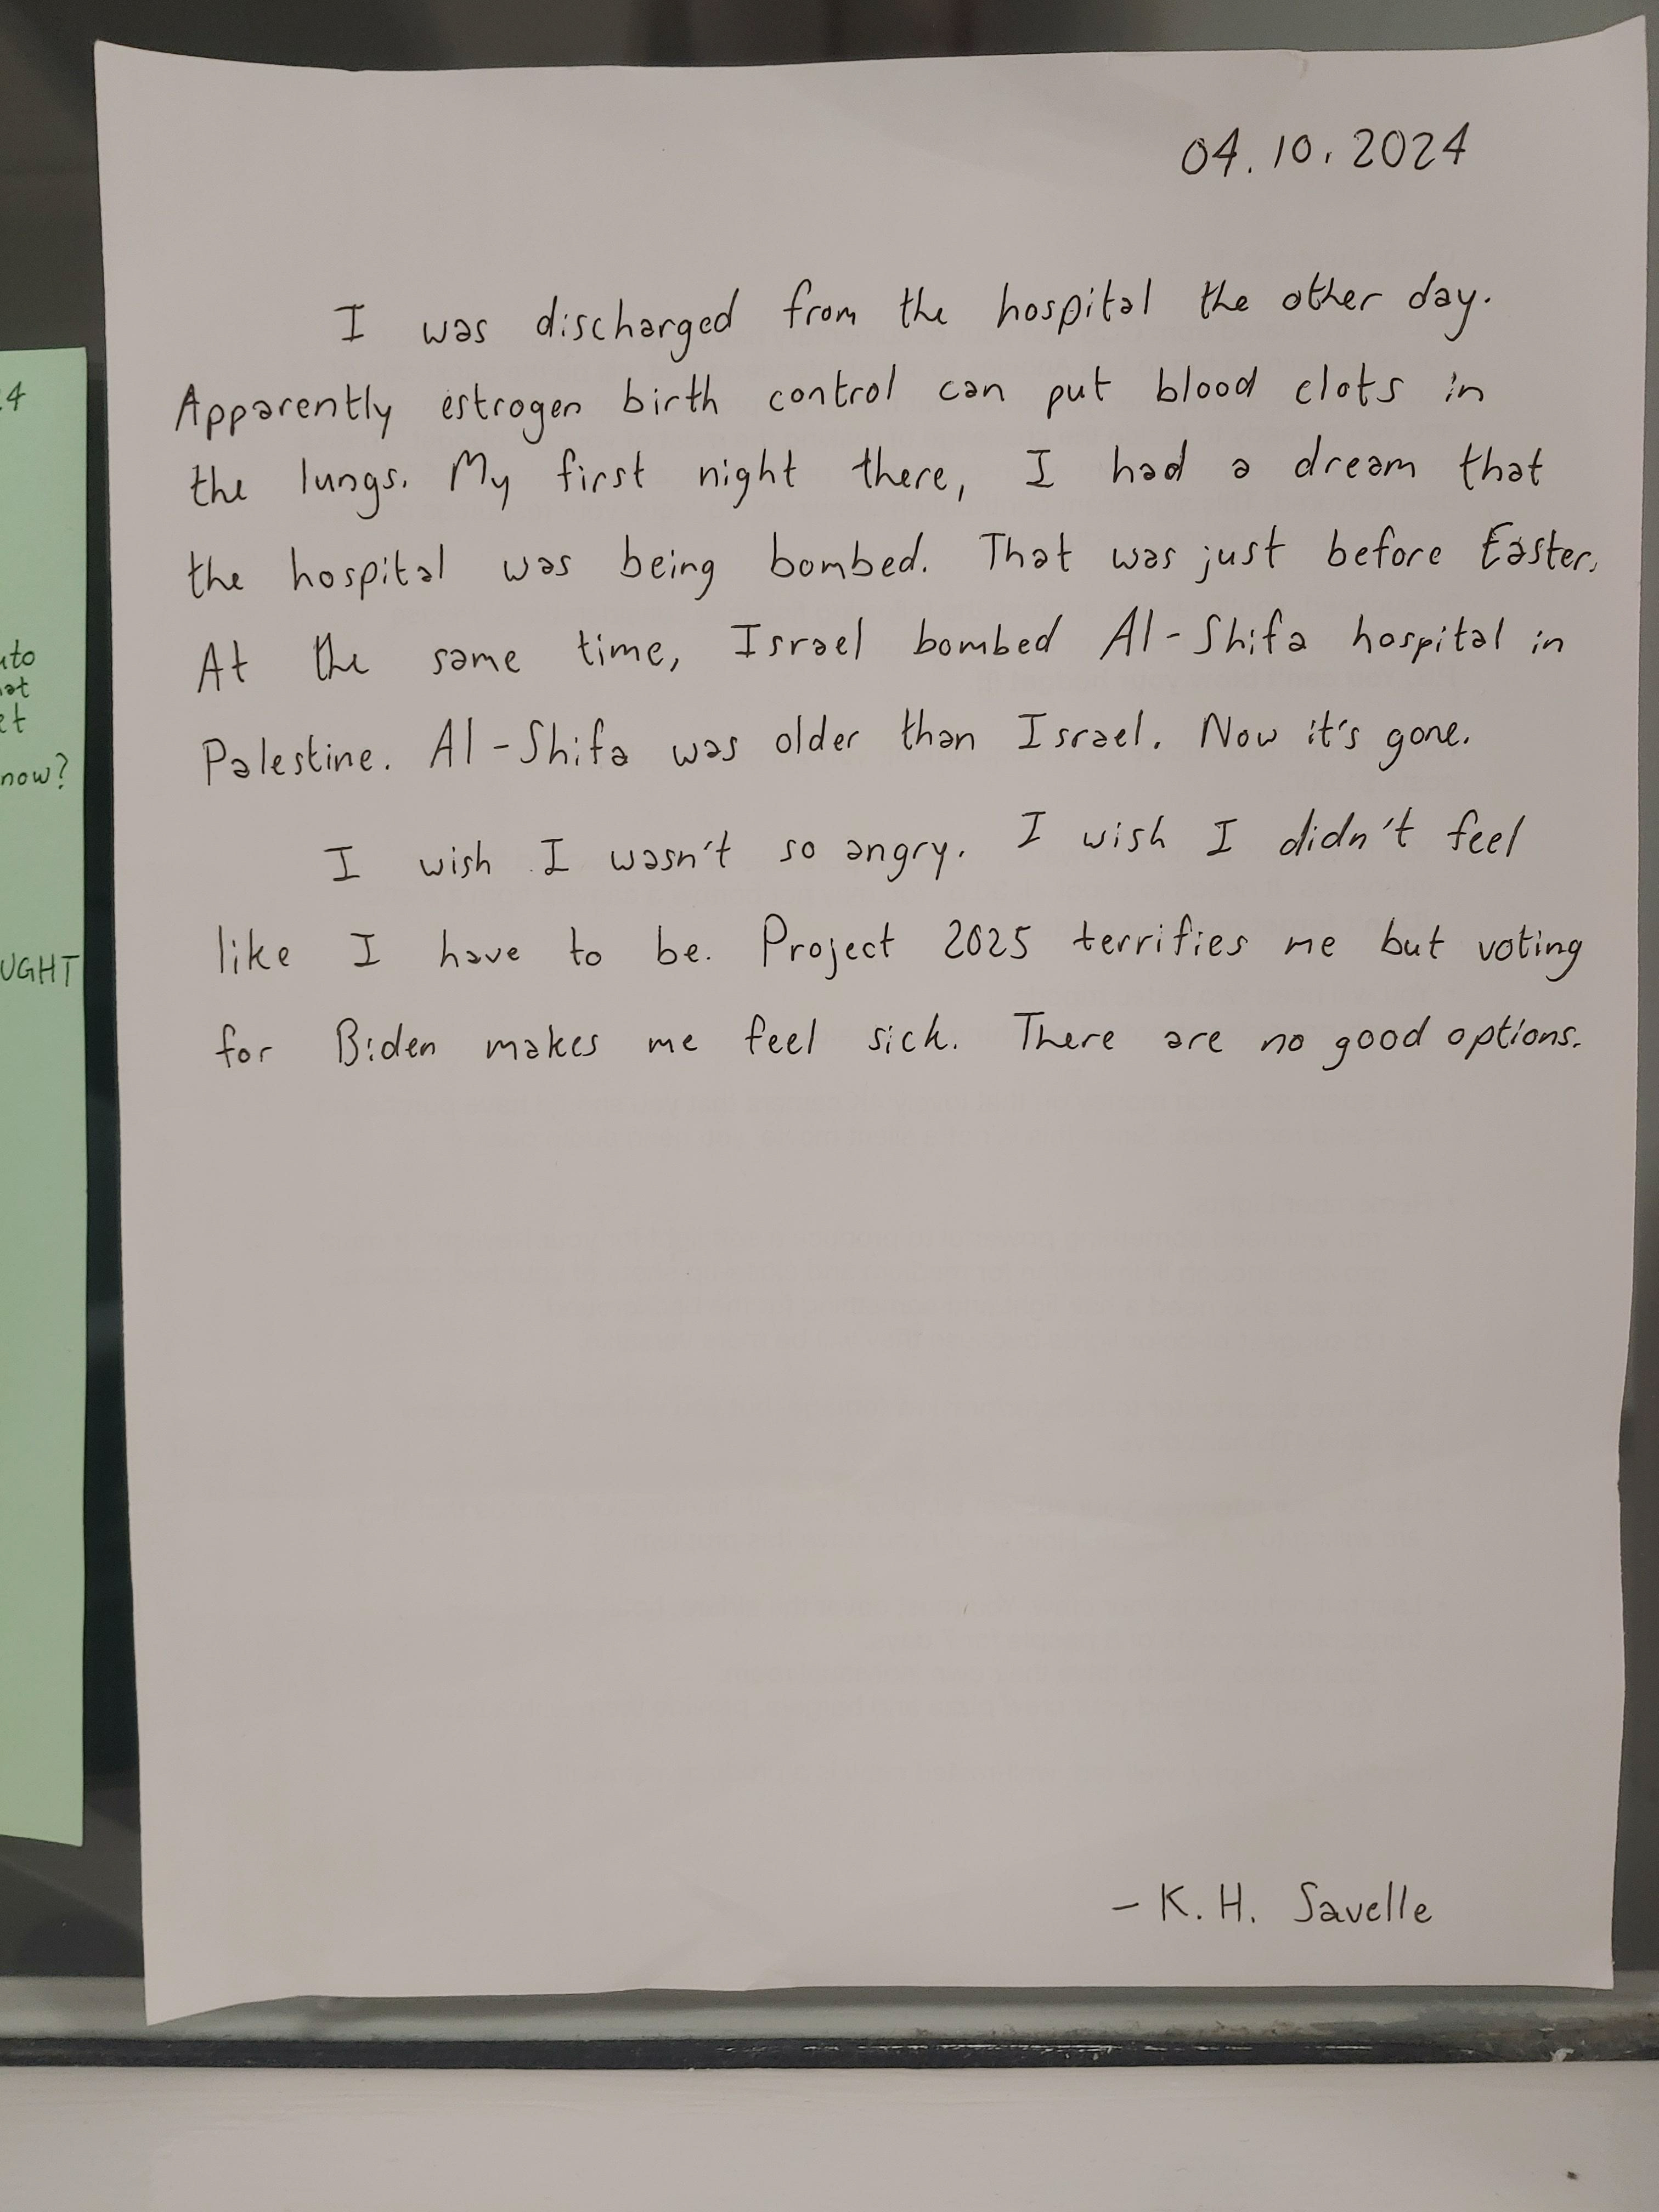 04.10.2024
I was discharged from the hospital the other day.
Apparently estrogen birth control can put blood clots in
the lungs. My first night there, I had a dream that
the hospital was being bombed. That was just before Easter.
At the same time, Israel bombed Al-Shifa hospital in
Palestine. Al-Shifa was older than Israel. Now it's gone.
I wish I wasn't so angry. I wish I didn't feel
like I have to be. Project 2025 terrifies me but voting
for Biden makes me feel sick. There are no good options.
- K. H. Savelle
now?